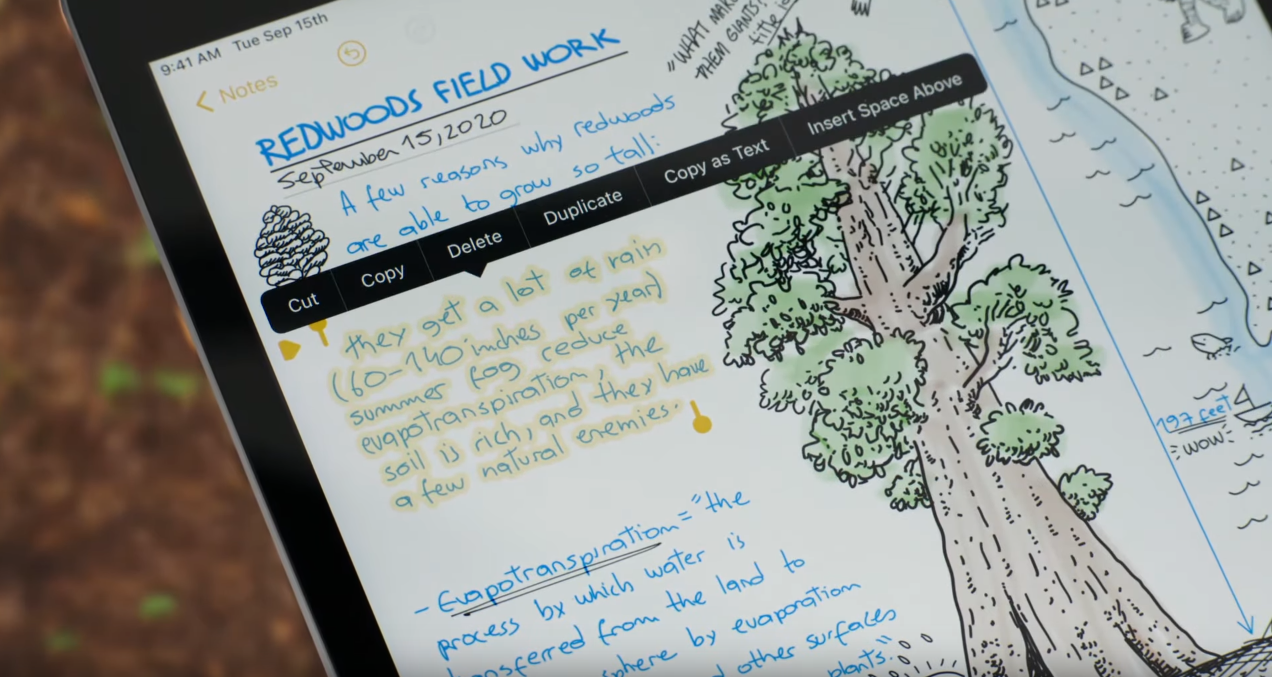 9:41 AM Tue Sep 15th
Notes
REDWOODS FIELD WORK
September 15, 2020
"WHAT MAKE
THEM GIANTS?
title i
A few reasons why redwoods
are able to grow so tall:
Cut Copy Delete Duplicate Copy as Text Insert Space Above
they get a lot of rain
(60-140 inches per year)
summer fog reduce
evapotranspiration, the
soil is rich, and they have
a few natural enemies.
197 feet
WOW
- Evapotranspiration = "the
process by which water is
transferred from the land to
sphere by evaporation
d other surfaces
plants."